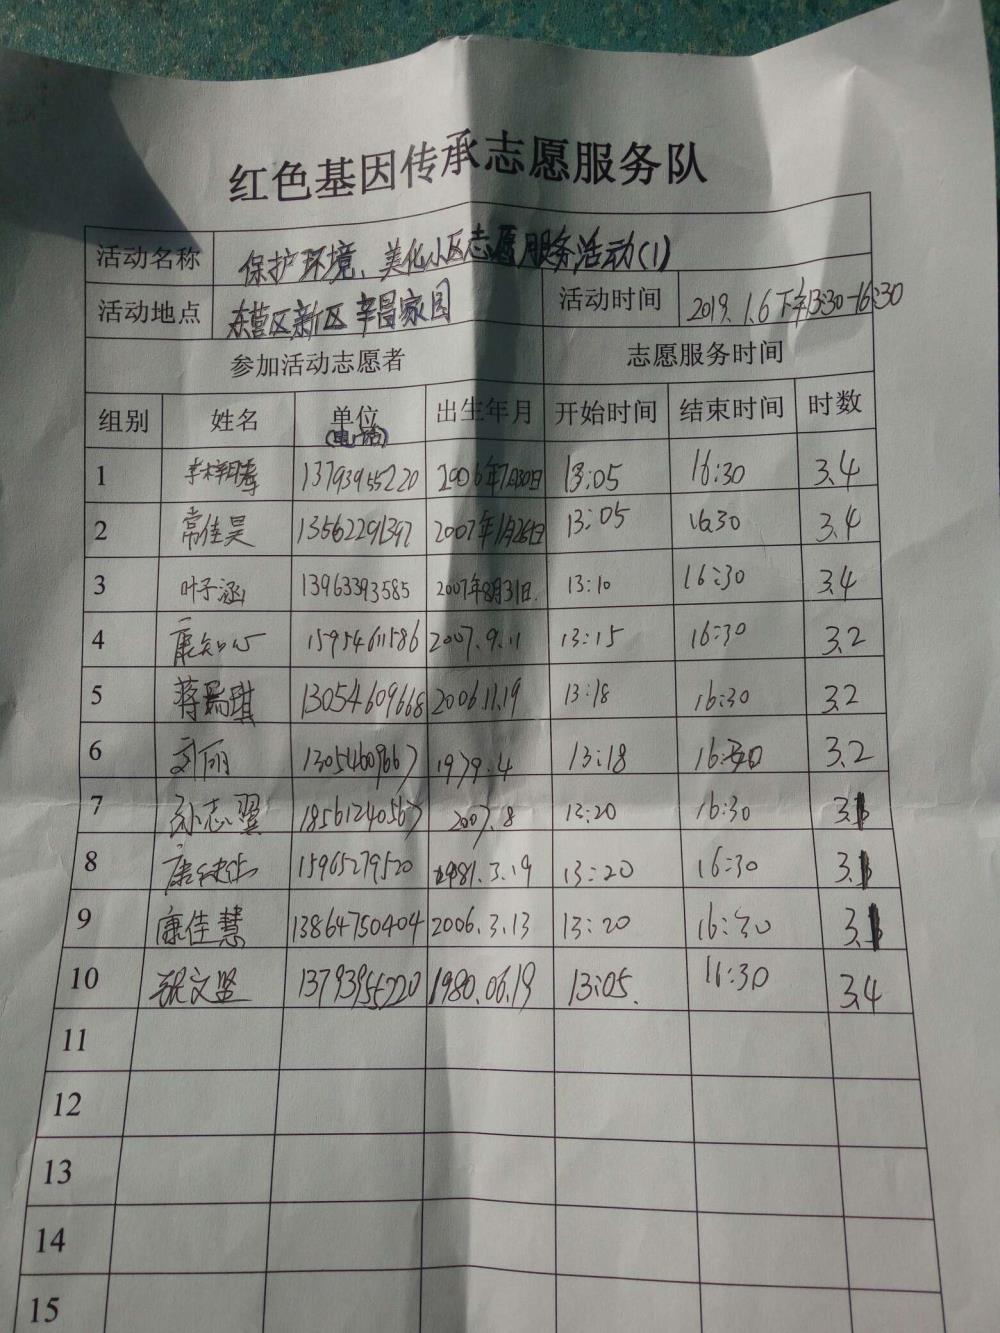 红色基因传承志愿服务队
活动名称 保护环境、美化小区志愿服务活动(1)
活动地点 东营区新区辛昌家园 活动时间 2019.1.6下午13:30-16:30
参加活动志愿者 志愿服务时间
组别 姓名 单位(电话) 出生年月 开始时间 结束时间 时数
1 13793955220 2006年7月30日 13:05 16:30 3.4
2 常佳昊 13562291397 2007年1月26日 13:05 16:30 3.4
3 叶子涵 13963393585 2007年8月31日. 13:10 16:30 3.4
4 康知心 15954611586 2007.9.11 13:15 16:30 3.2
5 蒋瑞琪 13054609668 2006.11.19 13:18 16:30 3.2
6 刘丽 13054609667 1979.4 13:18 16:30 3.2
7 孙志翼 18561240567 2007.8 13:20 16:30
8 15965279520 1981.3.19 13:20 16:30
9 康佳慧 13864750404 2006.3.13 13:20 16:30
10 张文坚 13793955220 1980.06.19 13:05. 16:30 3.4
11
12
13
14
15